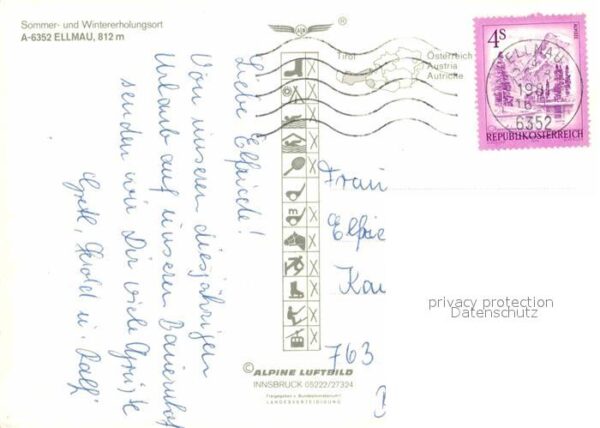 Sommer- und Wintererholungsort
A-6352 ELLMAU, 812 m
Liebe Elfriede!
Von unserem diesjährigen
Urlaub auf unserem Bauernhof
senden wir Dir viele Grüße
Gretl, Harold u. Ralf
Tirol
Österreich
Austria
Autriche
m
4S
REPUBLIK ÖSTERREICH
ELLMAU
6352
Frau
Elfrie
Kau
763
D
privacy protection
Datenschutz
© ALPINE LUFTBILD
INNSBRUCK 05222/27324
Freigegeben v. Bundesministerium f.
LANDESVERTEIDIGUNG